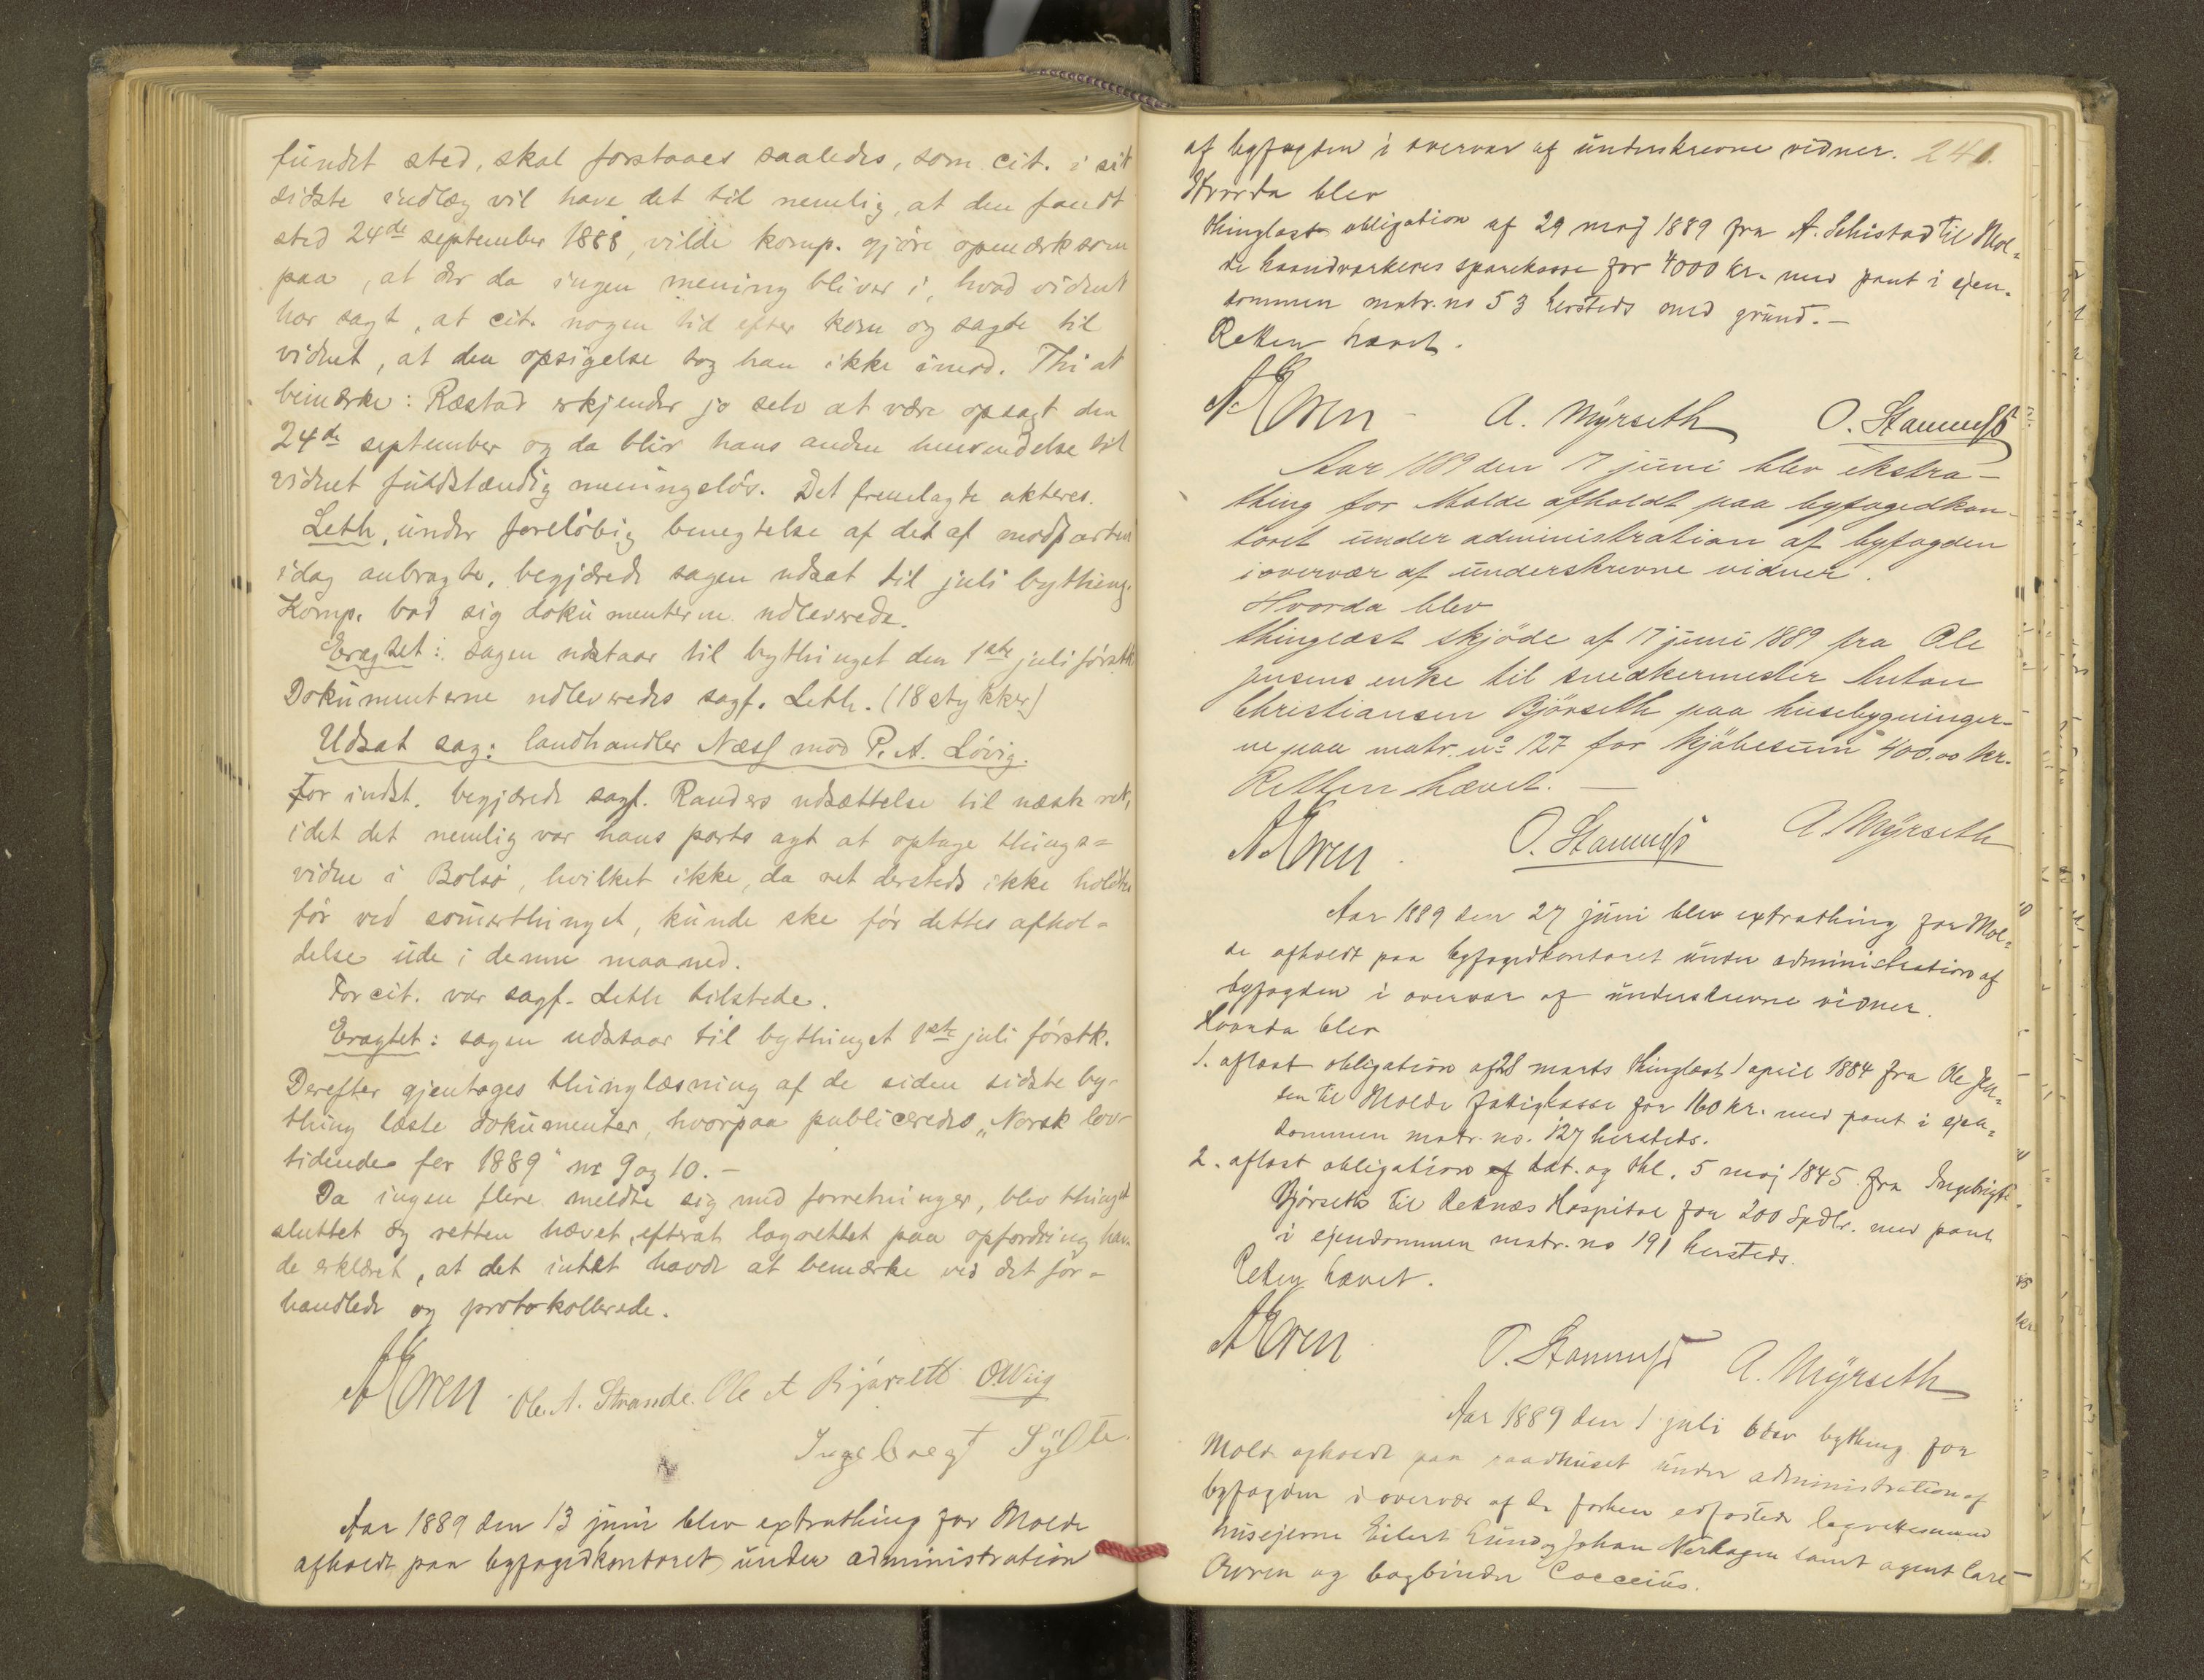 fundet sted, skal forstaaes saaledes, som cit. i sit
sidste indlæg vil have det til nemlig, at den fandt
sted 24de september 1888, vilde komp. gjöre opmerksom
paa, at der da ingen mening bliver i, hvad vidnet
har sagt, at cit. nogen tid efter kom og sagde til
vidnet, at den opsigelse tog han ikke imod. Thi at
bemærke: Ræstad erkjender jo selv at være opsagt den
24de september og da blir hans anden henvendelse til
vidnet fuldstændig meningslös. Det fremlagte akteres.
Leth, under foreløbig benegtelse af det af modparten
idag anbragte, begjærede sagen udsat til juli bything.
Komp. bad sig dokumenterne udleverede.
Eragtet: sagen udstaar til bythinget den 1ste juli förstk.
Dokumenterne udleveredes sagf. Leth. (18 stykker)
Udsat sag: landhandler Næss mod P. A. Lövig.
For indst. begjærede sagf. Randers udsættelse til næste ret,
idet det nemlig var hans parts agt at optage things=
vidne i Bolsö, hvilket ikke, da ret dersteds ikke holdtes
för ved somerthinget, kunde ske för dettes afhol=
delse ude i denne maaned.
For cit. var sagf. Leth tilstede.
Eragtet: sagen udstaar til bythinget 1ste juli förstk.
Derefter gjentoges thinglæsning af de siden sidste by-
thing læste dokumenter, hvorpaa publiceredes „Norsk lov-
tidende for 1889" nr 9 og 10. –
Da ingen flere meldte sig med forretninger, blev thinget
sluttet og retten hævet, efterat lagrettet paa opfordring hav-
de erklæret, at det intet havde at bemærke ved det for-
handlede og protokollerede.
Ole A. Strande. Ole A Björseth
Ingebregt Sylte.
Aar 1889 den 13 juni blev extrathing for Molde
afholdt paa byfogedkontoret under administration
241.
af byfogden i overvær af underskrevne vidner.
Hvorda blev
thinglæst obligation af 29 maj 1889 fra A. Schistad til Mol=
de haandværkeres sparekasse for 4000 kr. med pant i ejen-
dommen matr. no 53 hersteds med grund. –
Retten hævet.
A. Myrseth
Aar 1889 den 17 juni blev ekstra-
thing for Molde afholdt paa byfogedkon-
toret under administration af byfogden
i overvær af underskrevne vidner.
Hvorda blev
thinglæst skjöde af 17 juni 1889 fra Ole
Jensens enke til snedkermester Anton
Christiansen Bjørseth paa husebygninger-
ne paa matr. no 127 for kjöbesum 400.00 kr.
Retten hævet. –
A Myrseth
Aar 1889 den 27 juni blev extrathing for Mol=
de afholdt paa byfogedkontoret under administration af
byfogden i overvær af underskrevne vidner.
Hvorda blev
1. aflæst obligation af 28 marts thinglæst 1 april 1884 fra Ole Jen=
sen til Molde fattigkasse for 160 kr. med pant i ejen=
dommen matr. no. 127 hersteds.
2. aflæst obligation af dat. og thl. 5 maj 1845 fra Ingebrigt
Bjørseth til Reknæs Hospital for 200 Spdlr. med pant
i ejendommen matr. no 191 hersteds.
Retten hævet.
A. Myrseth
Aar 1889 den 1 juli blev bything for
Molde afholdt paa raadhuset under administration af
byfogden i overvær af de forhen edfæstede lagrettesmænd
husejerne Eilert Lund og Johan Nerhagen samt agent Carl
Owren og bogbinder Cocceius.